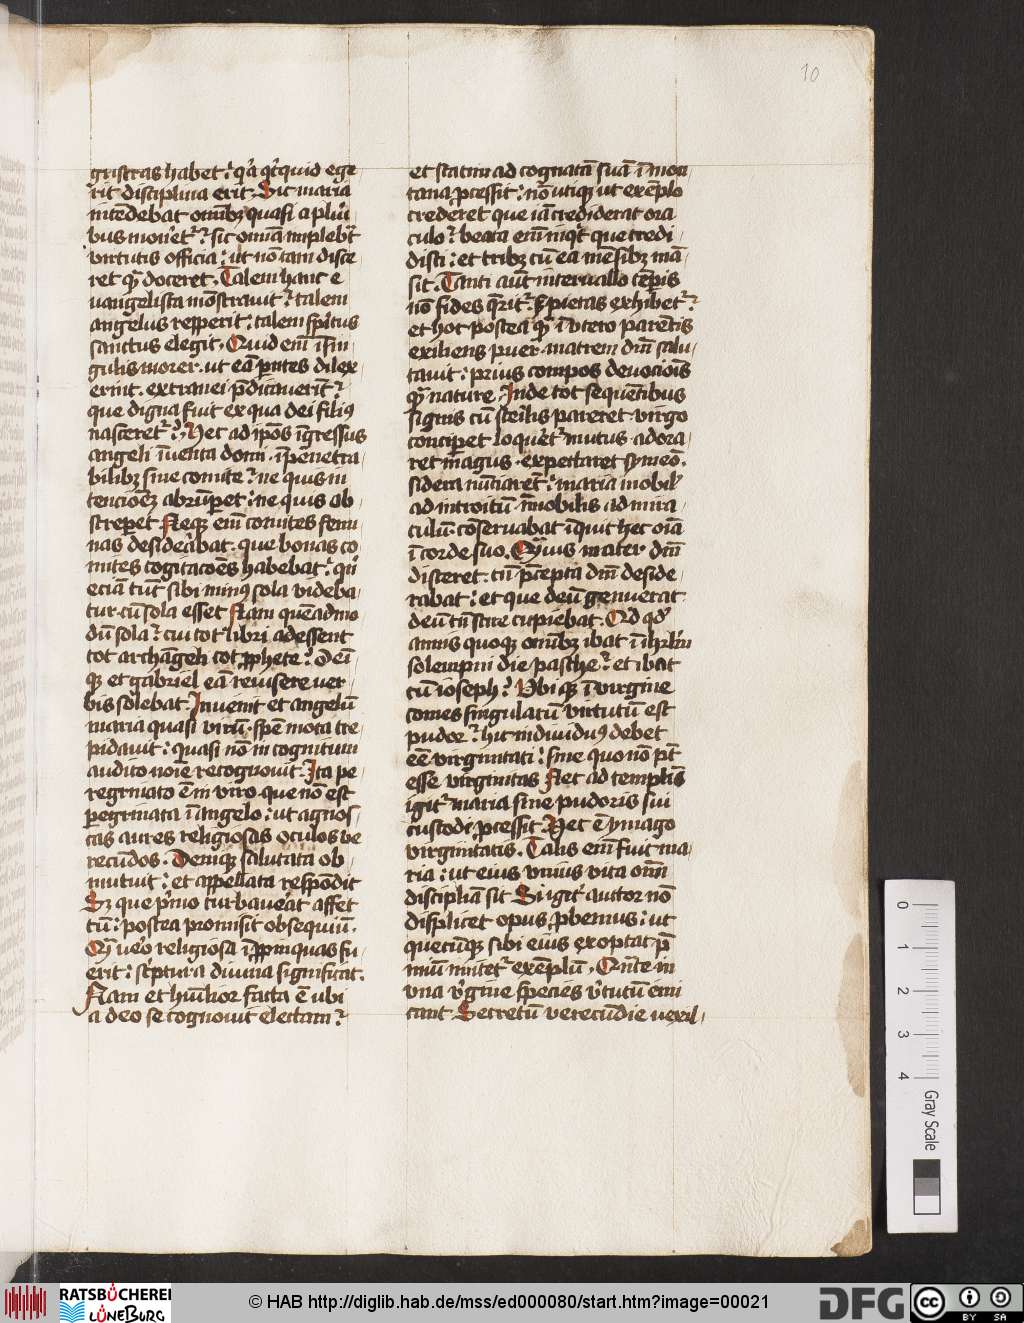 10
gistras habet: qa qicquid ege
rit disciplina erit. Sic maria
intēdebat omībꝫ quasi a pluri
bus moneret᷑: sic omnia implebat
virtutis officia: ut nō tam disce
ret qᷓ doceret. Talem hanc e
uangelista mōstrauit: talem
angelus repperit: talem spiritus
sanctus elegit. Quid enī ī sin
gulis moror. ut eā parentes dilex
erint. extranei p̄dicauerīt:
que digna fuit ex qua dei filiꝰ
nasceret᷑: Hec ad ipōs īgressus
angeli īuenta domi. ī penetra
libꝫ sine comite: ne quis in
tencionē abrūperet: ne quis ob
streperet. Neqꝫ enī comites femi
nas desiderabat. que bonas co
mites cogitacōes habebat: qn
eciā tūc sibi minꝰ sola videba
tur. cū sola esset Nam quēadmo
dū sola: cui tot libri adessent
tot archāgeli tot ꝓphete: Deni
qꝫ et gabriel eā reuisere uer
bis solebat. Inuenit et angelū
maria quasi virū. spēie mota tre
pidauit: quasi nō incognitum
audito noīe recognouit. Ita pe
regrinata ē in viro que nō est
peregrinata ī angelo: ut agnos
cas aures religiosas oculos ve
recūdos. Deniqꝫ salutata ob
mutuit: et appellata respōdit
Sꝫ que primo turbauerat affec
tū: postea promisit obsequiū.
Qᷓ uero religiosa ī ꝓpinquas fu
erit: scriptura diuina significat.
Nam et humilior facta ē ubi
a deo se cognouit electam:
et statim ad cognatā suā ī mon
tana ꝓcessit: nō utiqꝫ ut exēplo
crederet que iā crediderat ora
culo: beata enī inqit que credi
disti: et tribꝫ cū ea mēsibꝫ mā
sit. Tanti autē interuallo tēpis
nō fides querit᷑. sꝫ pietas exhibet᷑:
et hoc postea qᷓ ī vtero parētis
exiliens puer. matrem dnī salu
tauit: prius compos deuociōis
qᷓ nature. Inde tot sequētibus
signis cū sterilis pareret. virgo
conciperet loqueret᷑ mutus. adora
ret magus. expectaret symeō.
sidera nūciarēt: maria mobil
ad introitū. īmobilis ad mira
culū. conseruabat īquit hec oīa
ī corde suo. Qᷓuis mater dnī
disceret. tn̄ p̄cepta dnī deside
rabat: et que deū genuerat
deū tn̄ scire cupiebat. Qd qd
annis quoqꝫ omībꝫ ibat ī ihrlm
solempni die pasche: et ibat
cū ioseph: Vbiqꝫ ī virgine
comes singularū virtutū est
pudor: hic indiuiduꝰ debet
eē virginitati: sine quo nō pōt
esse virginitas Nec ad templū
igit᷑ maria sine pudoris sui
custode ꝓcessit. Hec ē ymago
virginitatis. Talis enī fuit ma
ria: ut eius vnius vita omnī
disciplina sit Si igit᷑ auctor nō
displicet opus ꝓbemus: ut
quecūqꝫ sibi eius exoptat p̄
mium imitet᷑ exēplū. Quāte in
vna v̄gine species v̄tutū emi
cant Secretū verecūdie uexil
0
1
2
3
4
Gray Scale
RATSBÜCHEREI
LÜNEBURG
© HAB http://diglib.hab.de/mss/ed000080/start.htm?image=00021
DFG
cc
BY
SA